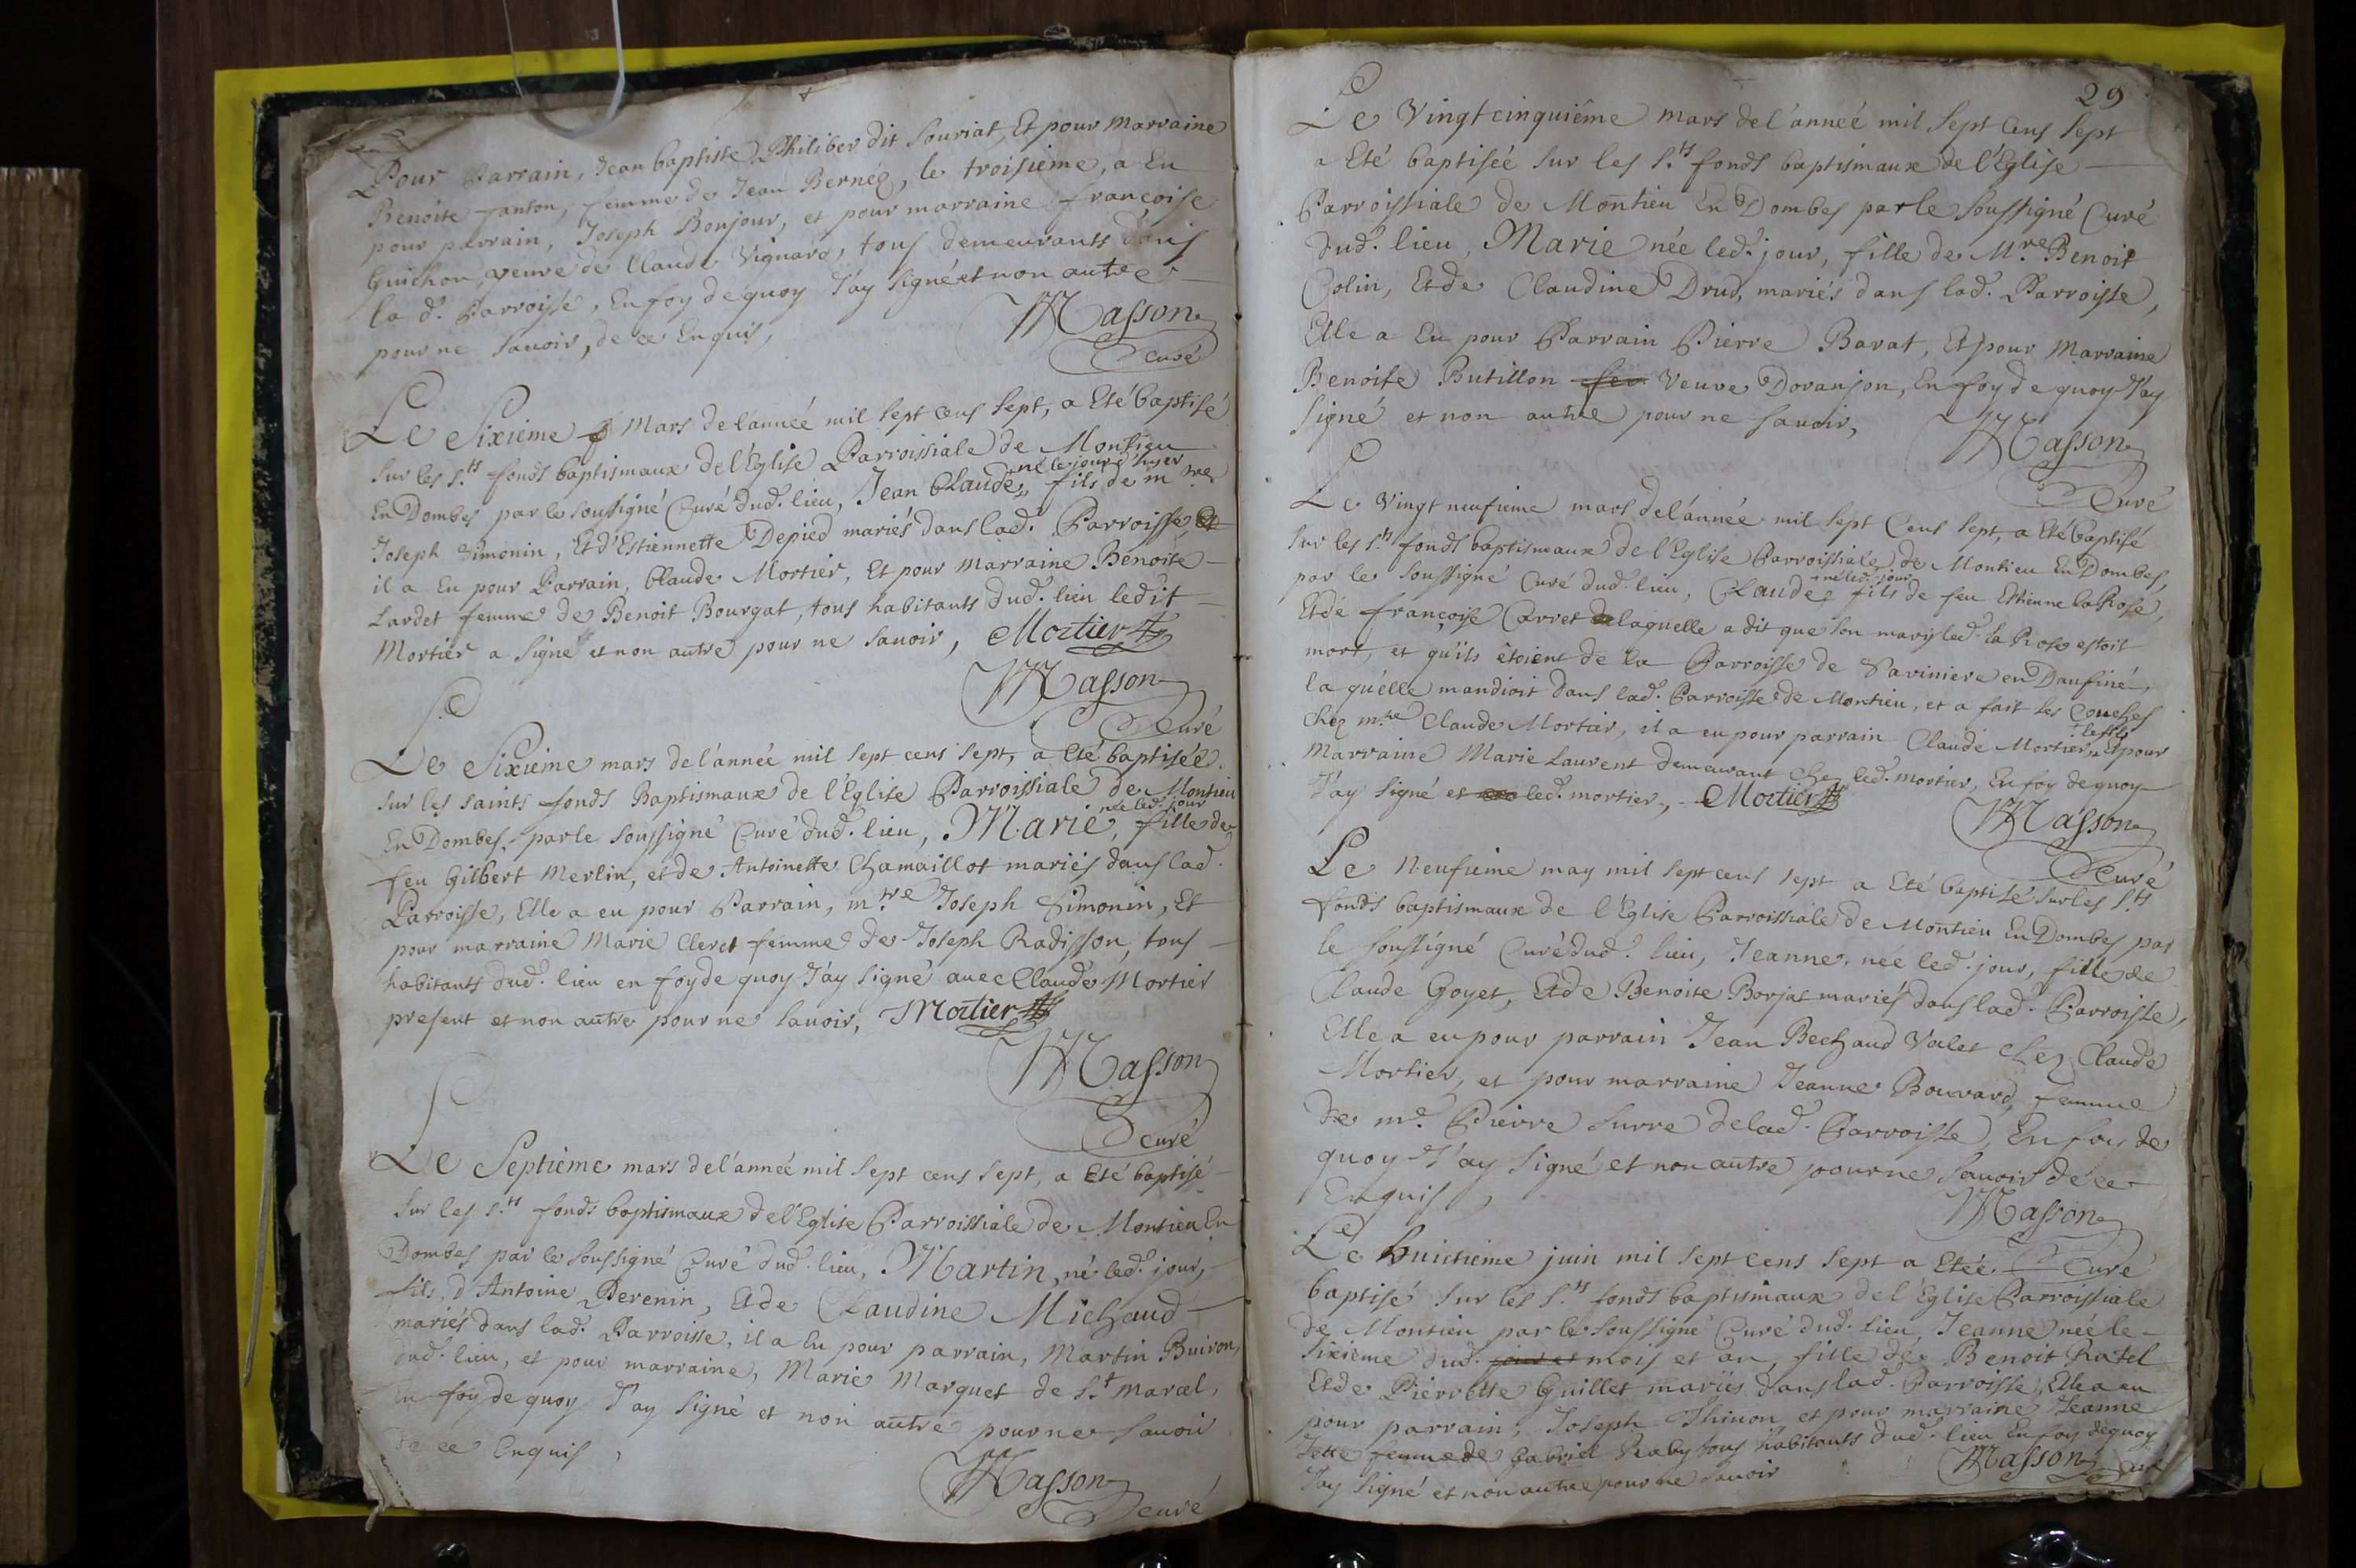 Pour Parrain, Jean baptiste Philiber dit Souriat, Et pour Marraine
Benoite fanton, femme de Jean Bernée, le troisieme, a Eu
pour parrain, Joseph Bonjour, et pour marraine francoise
Guichon, veuve de Claude Vignard, tous demeurants dans
la d. Parroisse, En foy de quoy J'ay signé et non autre
pour ne savoir, de ce Enquis,
Masson
Curé
Le Sixieme Mars de l'année mil sept cens sept, a Eté baptisé
sur les s.ts fonds baptismaux de l'Eglise Parroissiale de Montieu
né le jour d'hyer
En Dombes par le soussigné Curé dud. lieu, Jean Claude, fils de m.re
Joseph Simonin, Et d'Estiennette Depied mariés dans lad. Parroisse, Et
il a Eu pour Parrain, Claude Mortier, Et pour Marraine Benoite
Lardet femme de Benoit Bourgat, tous habitants dud. lieu ledit
Mortier a signé et non autre pour ne savoir, Mortier
Masson
Curé
Le Sixieme mars de l'année mil sept cens sept, a Eté baptisée
sur les saints fonds Baptismaux de l'Eglise Parroissiale de Montieu
née led. jour
En Dombes, par le soussigné Curé dud. lieu, Marie, fille de
feu Gilbert Merlin, et de Antoinette Chamaillot mariés dans lad.
Parroisse, Elle a eu pour Parrain, m.re Joseph Simonin, Et
pour marraine Marie Cleret femme de Joseph Radisson, tous
habitants dud. lieu en foy de quoy J'ay signé avec Claude Mortier
present et non autre pour ne savoir, Mortier
Masson
Curé
Le Septieme mars de l'année mil sept cens sept, a Eté baptisé
sur les s.ts fonds baptismaux de l'Eglise Parroissiale de Montieu En
Dombes par le soussigné Curé dud. lieu, Martin, né led. jour,
fils d'Antoine Perenin, Et de Claudine Michaud
mariés dans lad. Parroisse, il a Eu pour parrain, Martin Buiron,
dud. lieu, et pour marraine, Marie Marquet de s.t marcel,
En foy de quoy J'ay signé et non autre pour ne savoir
de ce Enquis,
Masson
curé
29
Le Vingt cinquiême mars de l'année mil sept Cens sept
a Eté baptisée sur les s.ts fonds baptismaux de l'Eglise
Parroissiale de Montieu En Dombes par le soussigné Curé
dud. lieu, Marie née led. jour, fille de M.re Benoit
Colin, Et de Claudine Drud, mariés dans lad. Parroisse,
Elle a Eu pour Parrain Pierre Barat, Et pour Marraine
Benoite Butillon Veuve Doranjon, En foy de quoy J'ay
signé et non autre pour ne savoir,
Masson
Curé
Le Vingt neufieme mars de l'année mil sept Cens sept, a Eté baptisé
sur les s.ts fonds baptismaux de l'Eglise Parroissiale de Montieu En Dombes,
né led. jour
par le soussigné Curé dud. lieu, Claude, fils de feu Estienne la Rose,
Et de françoise Carret laquelle a dit que son mary led. la Rose estoit
mort, et qu'ils étoient de la Parroisse de Saviniere en Daufiné,
la quelle mandioit dans lad. Parroisse de Montieu, et a fait ses Couches
chez m.re Claude Mortier, il a eu pour parrain Claude Mortier, Et pour
le fils
Marraine Marie Laurent demeurant chez led. mortier, En foy de quoy
J'ay signé et led. mortier, Mortier
Masson
Curé
Le Neufieme may mil sept cens sept a Eté baptisé sur les s.ts
fonds baptismaux de l'Eglise Parroissiale de Montieu En Dombes par
le soussigné Curé dud. lieu, Jeanne née led. jour, fille de
Claude Goyet, Et de Benoite Borjat mariés dans lad. Parroisse,
Elle a eu pour parrain Jean Bechaud Valet chez Claude
Mortier, et pour marraine Jeanne Bouvard femme
de m.e Pierre Surre de lad. Parroisse, En foy de
quoy J'ay signé et non autre pour ne savoir de ce
Enquis,
Masson
Curé
Le huictieme juin mil sept cens sept a Etée
baptisé sur les s.ts fonds baptismaux de l'Eglise Parroissiale
de Montieu par le soussigné Curé dud. lieu, Jeanne née le
sixieme dud. jour et mois et an, fille de Benoit Ratel
Et de Pierrette Guillet mariés dans lad. Parroisse, Elle a eu
pour parrain, Joseph Thinon et pour marraine Jeanne
Tette femme de Gabriel Raby tous habitants dud. lieu En foy de quoy
J'ay signé et non autre pour ne savoir
Masson curé